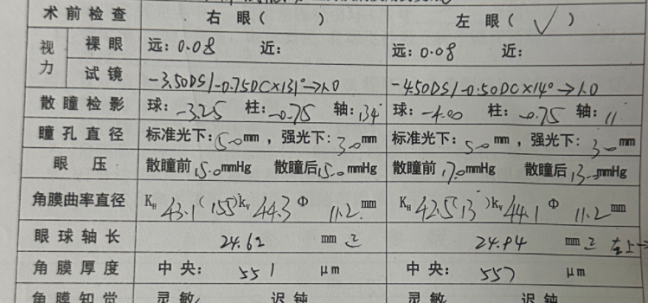 术前检查 右眼( ) 左眼(√)
视力 裸眼 远:0.08 近: 远:0.08 近:
试镜 -3.50DS/-0.75DC×131°→1.0 -4.50DS/-0.50DC×14°→1.0
散瞳检影 球:-3.25 柱:-0.75 轴:134° 球:-4.00 柱:-0.75 轴:11°
瞳孔直径 标准光下:5.0mm,强光下:3.0mm 标准光下:5.0mm,强光下:3.0mm
眼压 散瞳前15.0mmHg 散瞳后15.0mmHg 散瞳前17.0mmHg 散瞳后13.0mmHg
角膜曲率直径 KH 43.1(155)KV 44.3 Φ 11.2mm KH 42.5(13°)KV 44.1 Φ 11.2mm
眼球轴长 24.62 mm 24.94 mm
角膜厚度 中央:551 μm 中央:557 μm
角膜知觉 灵敏 迟钝 灵敏 迟钝